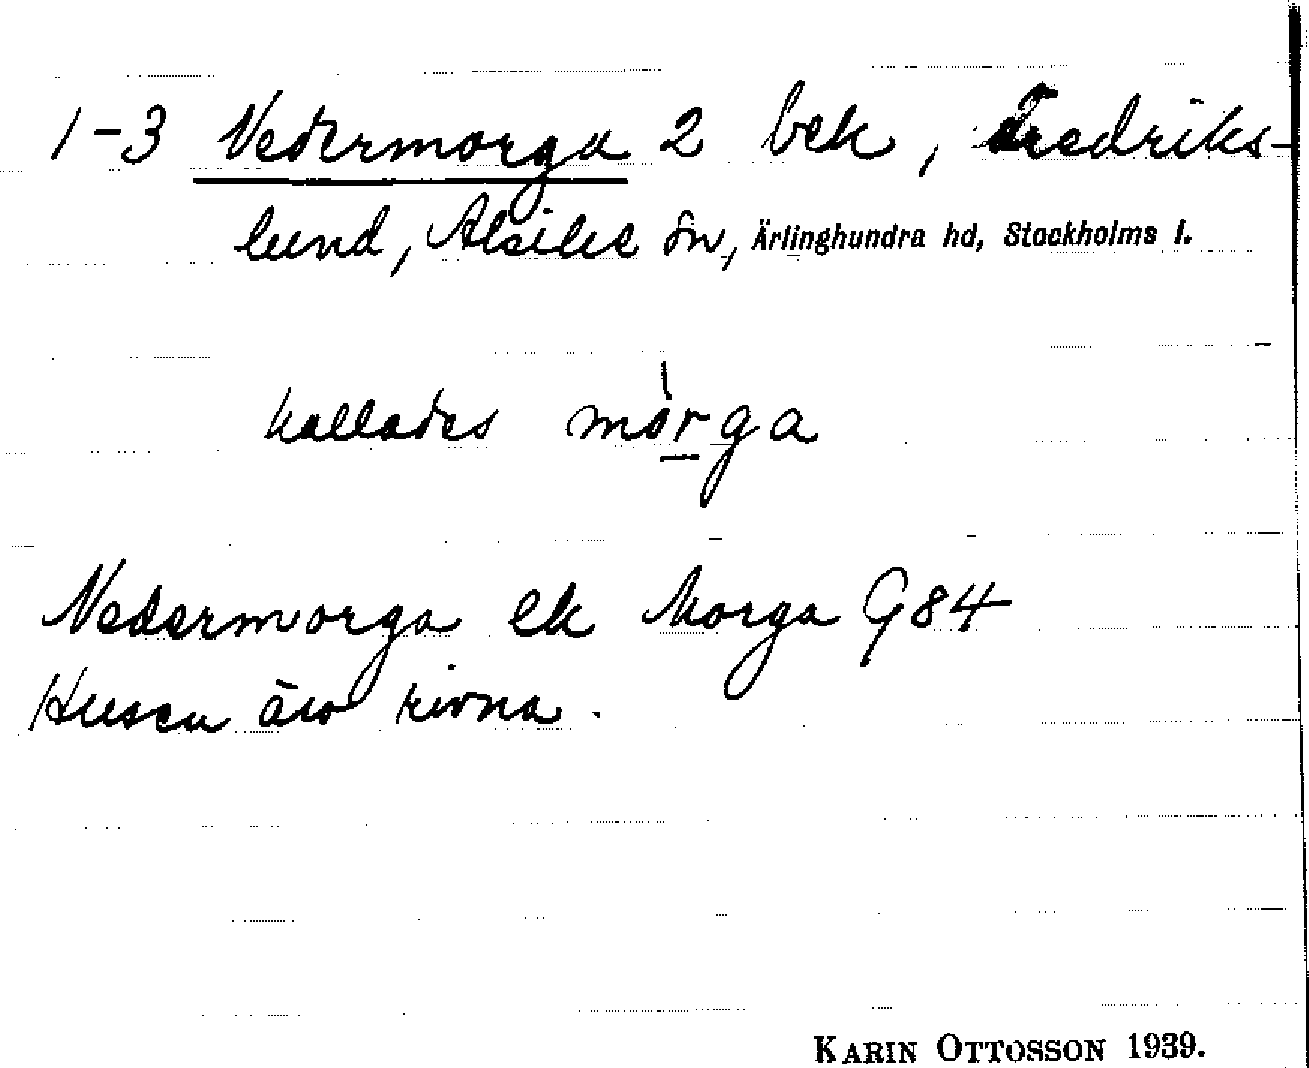 1-3 Nedermorga 2 bek, Fredriks-
lund, Alsike sn, Ärlinghundra hd, Stockholms l.
kallades mòrga
Nedermorga ek Morga G84
Husen äro rivna.
KARIN OTTOSSON 1939.